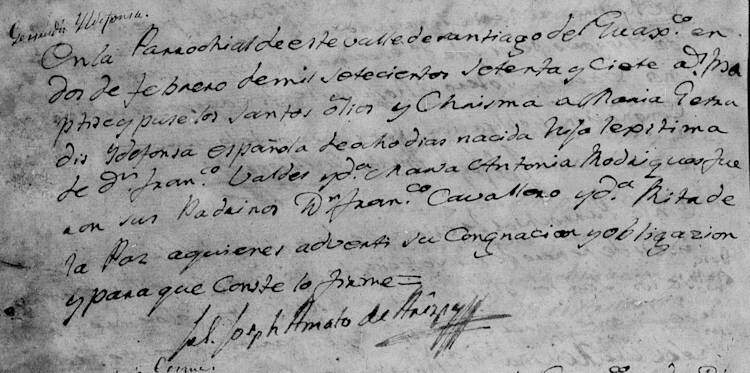 Gertrudis Yldefonsa.
En la Parrochial de este Valle de santiago del Guax.co en
dos de febrero de mil setecientos setenta y ciete a.s Ba
ptize y puse los santos õlios y Chrisma a Maria Getru
dis Ydefonsa española de ocho dias nacida hija lexitima
de d.n fran.co Valdes y d.a Maria Antonia Rodrigues fue
ron sus Padrinos D.n fran.co Cavallero y d.a Rita de
la Paz aquienes adverti su Congnacion y obligazion
y para que Conste lo firme =
Joseph Amato de